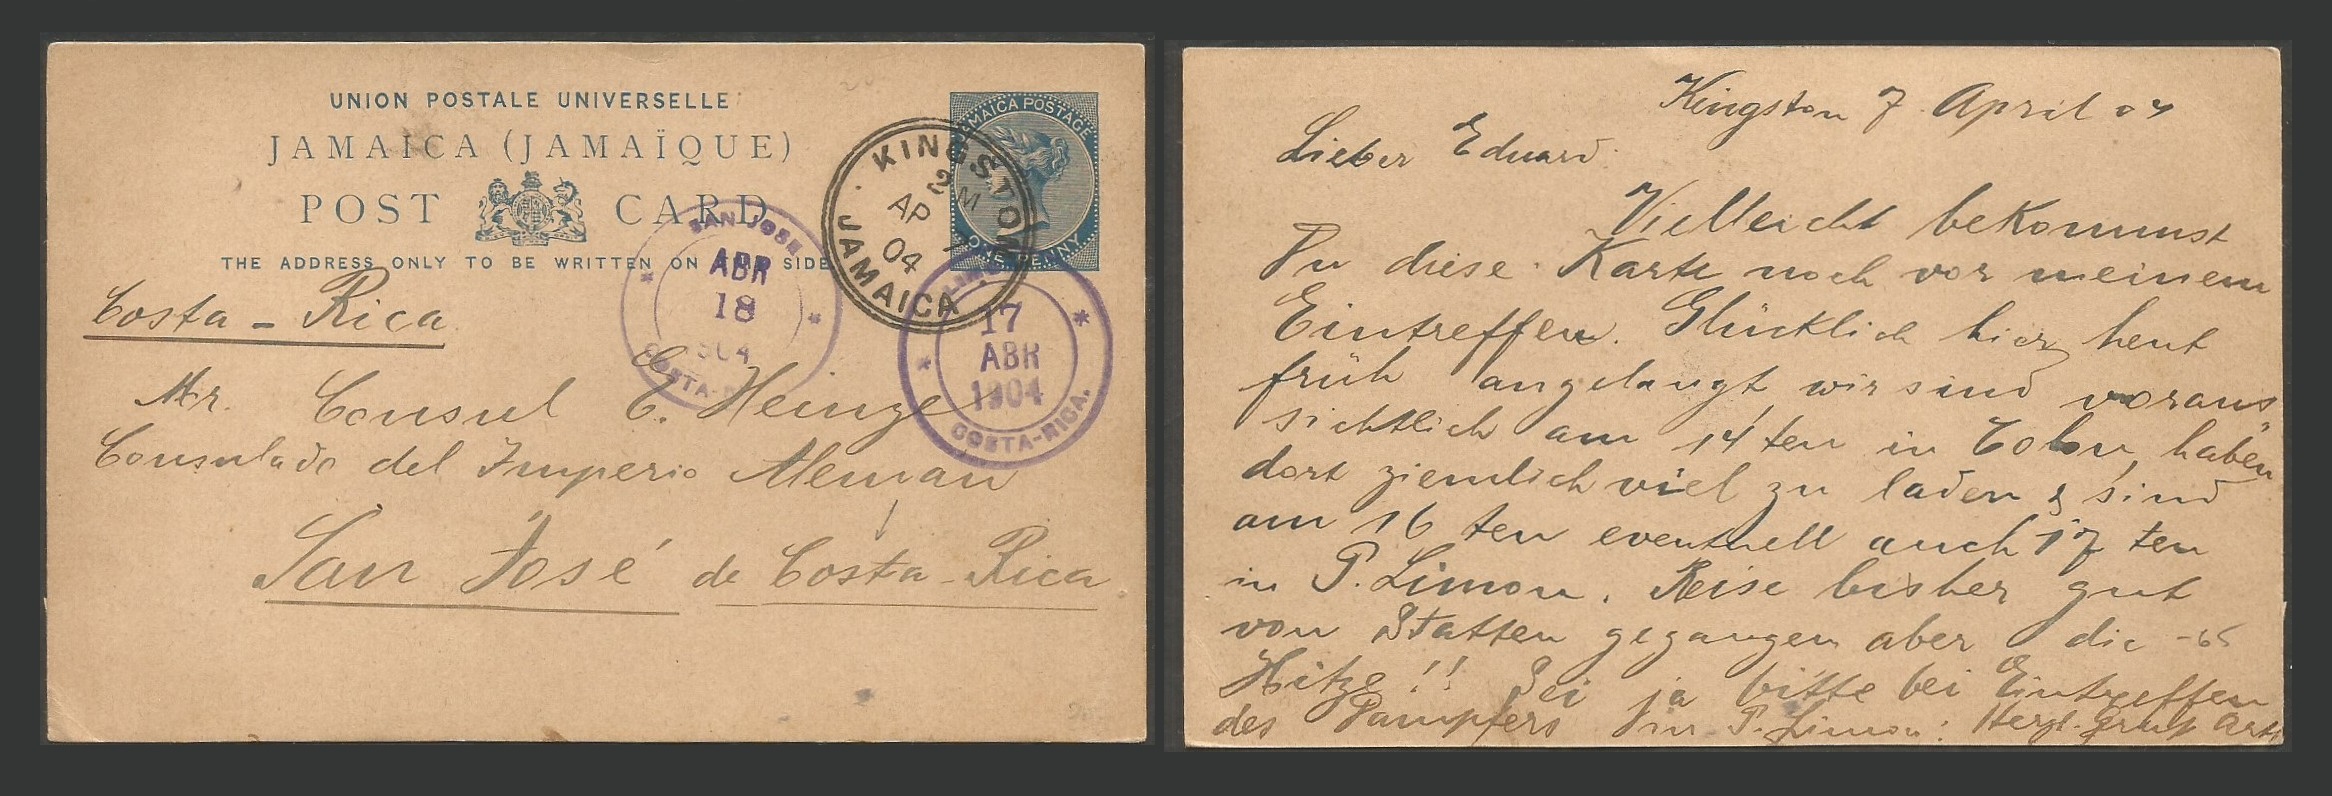 UNION POSTALE UNIVERSELLE
JAMAICA (JAMAÏQUE)
POST CARD
THE ADDRESS ONLY TO BE WRITTEN ON SIDE
JAMAICA POSTAGE
ONE PENNY
KINGSTON
2 M
AP 7
04
JAMAICA
SAN JOSE
ABR
18
904
COSTA-
17
ABR
1904
COSTA-RICA.
Costa - Rica
Mr. Consul E. Heinze
Consulado del Imperio Aleman
San José de Costa-Rica
Kingston 7 April 04
Lieber Eduard.
Vielleicht bekommst
Du diese Karte noch vor meinem
Eintreffen. Glücklich hier heut
früh angelangt wir sind voraus
sichtlich am 14ten in Colon, haben
dort ziemlich viel zu laden & sind
am 16 ten eventuell auch 17 ten
in P. Limon. Reise bisher gut
von Statten gegangen aber die
Hitze!! Sei ja bitte bei Eintreffen
des Dampfers in P. Limon. Herzl. Gruß